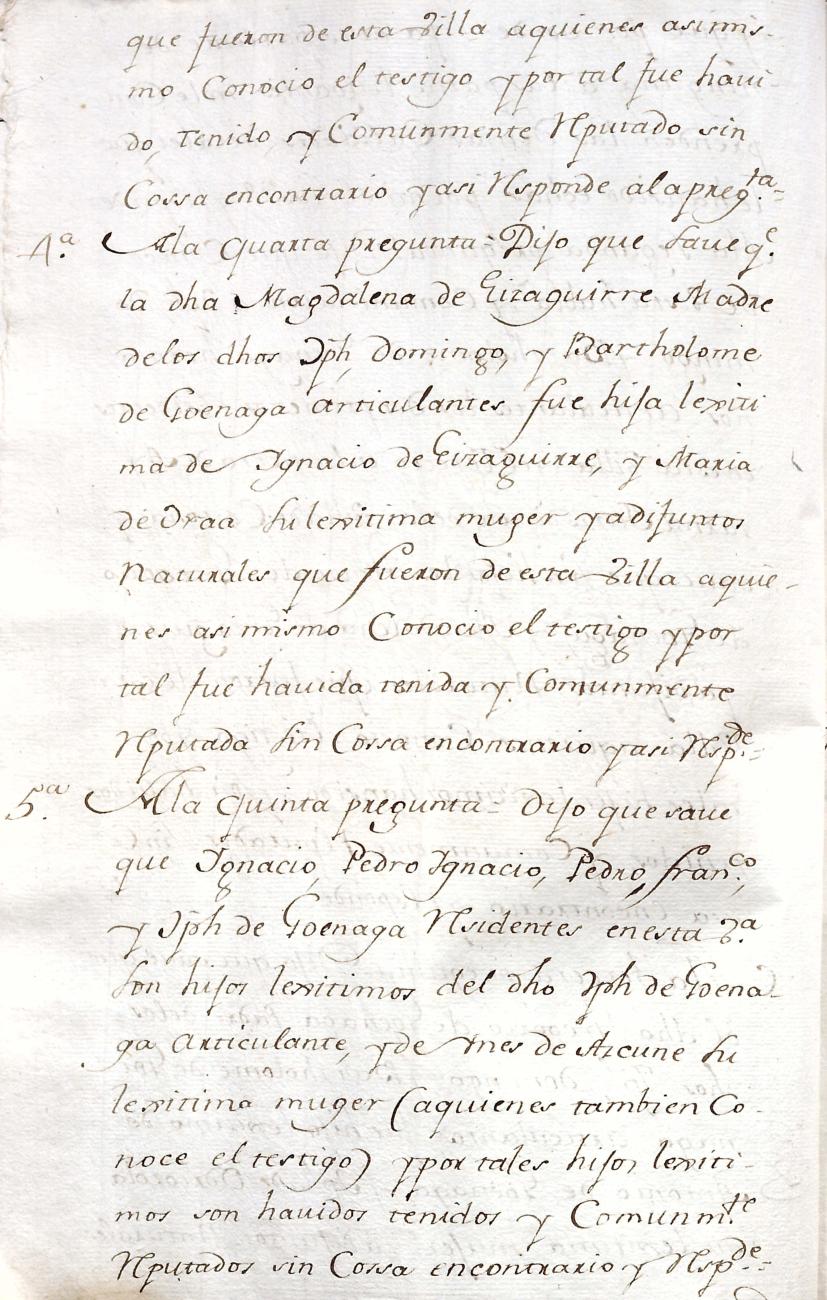 que fueron de esta Villa aquienes asimis-
mo Conocio el testigo y por tal fue havi
do, Tenido, y Comunmente Rputado sin
Cossa encontrario y asi Rsponde ala preg.ta=
4.a Ala quarta pregunta= Dijo que save q.e
la dha Magdalena de Eizaguirre Madre
delos dhos Jph, Domingo, y Bartholome
de Goenaga articulantes fue hija lexiti
ma de Ignacio de Eizaguirre, y Maria
de Oraa su lexitima muger ya difuntos
Naturales que fueron de esta Villa aquie-
nes asi mismo Conocio el testigo y por
tal fue havida tenida y Comunmente
Rputada sin Cossa encontrario y asi Rsp.de=
5.a Ala quinta pregunta= dijo que save
que Ignacio, Pedro Ignacio, Pedro, fran.co,
y Jph de Goenaga Rsidentes en esta V.a
son hijos lexitimos del dho Jph de Goena-
ga articulante, y de Ynes de Azcune su
lexitima muger (aquienes tambien Co-
noce el testigo) y por tales hijos lexiti-
mos son havidos tenidos y Comunm.te
Rputados sin Cossa encontrario y Rsp.de=